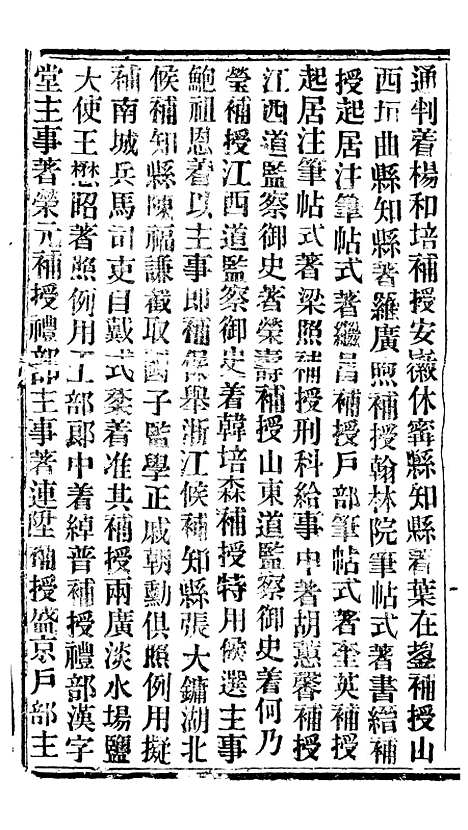 通判着楊和培補授安徽休寧縣知縣着葉在鋆補授山
西垣曲縣知縣著羅廣煦補授翰林院筆帖式著書縉補
授起居注筆帖式著繼昌補授戶部筆帖式著奎英補授
起居注筆帖式著梁照補授刑科給事中著胡蕙馨補授
江西道監察御史著榮壽補授山東道監察御史着何乃
瑩補授江西道監察御史着韓培森補授特用候選主事
鮑祖恩着以主事即補保舉浙江候補知縣張大鏞湖北
候補知縣陳福謙截取國子監學正戚朝勳俱照例用擬
補南城兵馬司吏目戴式棻着准其補授兩廣淡水場鹽
大使王懋昭著照例用工部郎中着綽普補授禮部漢字
堂主事著榮元補授禮部主事著連陞補授盛京戶部主